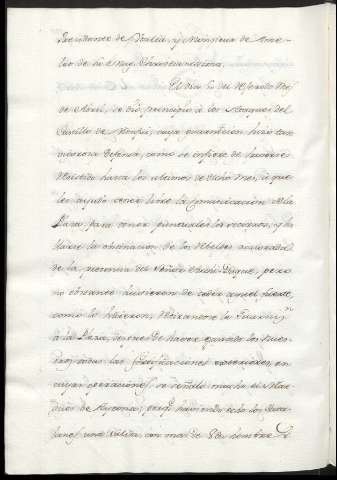 Presidente de Dvalia, y Monsieur de Ame-
lot de la Muy Christianissima.
El dia 5 del referido Mes
de Abril, se dió principio à los Ataques del
Castillo de Monjui, cuya guarnicion hizo tan
vigorosa defensa, como se infiere de haverse
resistido hasta los ultimos de dicho Mes, à que
les ayudó tener libre la comunicacion de la
Plaza, para tener puntuales los socorros, y la
la obstinacion de los rebeldes acalorada
de la presencia del Señor Archi-Duque, pero
no obstante huvieron de ceder aquel fuerte,
como lo hicieron, retirandose la Guarniz.on
à la Plaza, despues de haver ganado los nues-
tros todas las fortificaciones exteriores, en
cuyas operaciones se señaló mucho el Mar-
ques de Aytona, pues haviendo echo los Cata-
lanes una salida, con mas de 8U hombres